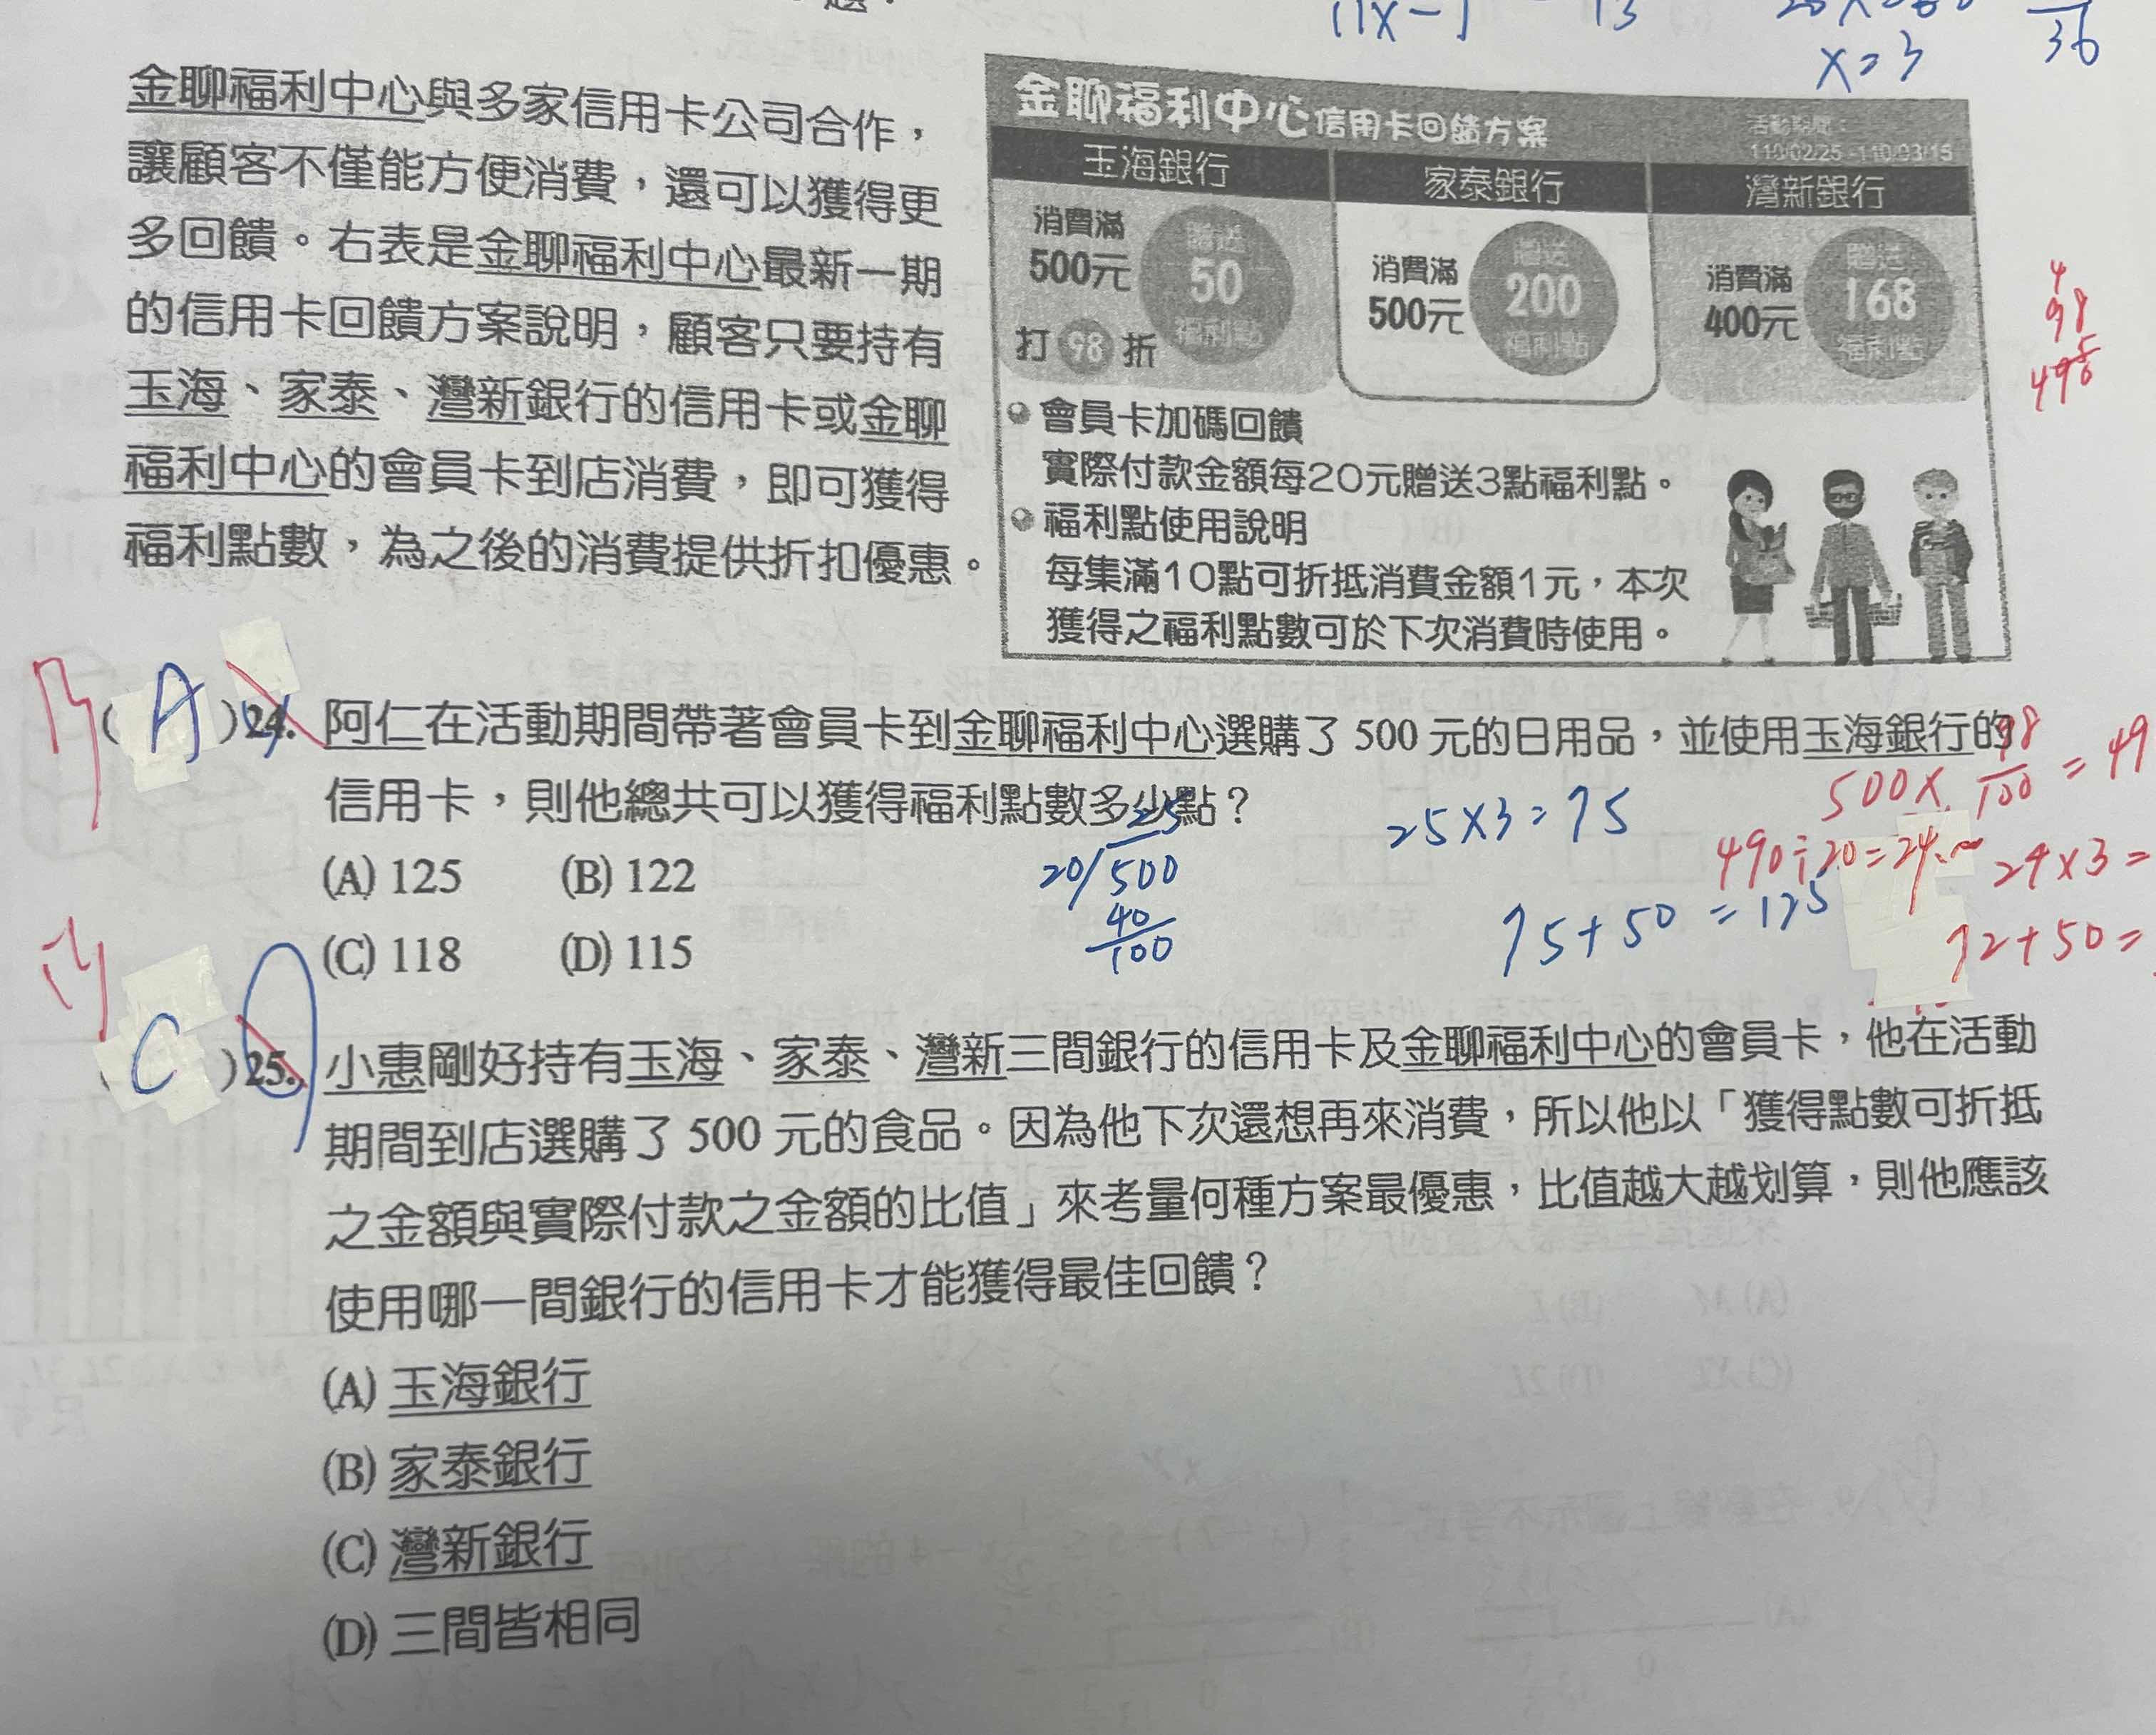 x=3
36
金聊福利中心與多家信用卡公司合作，
讓顧客不僅能方便消費，還可以獲得更
多回饋。右表是金聊福利中心最新一期
的信用卡回饋方案說明，顧客只要持有
玉海、家泰、灣新銀行的信用卡或金聊
福利中心的會員卡到店消費，即可獲得
福利點數，為之後的消費提供折扣優惠。
金聊福利中心信用卡回饋方案
活動期間：
110/02/25-110/03/15
玉海銀行
家泰銀行
灣新銀行
消費滿
500元
贈送
50
福利點
打98折
消費滿
500元
贈送
200
福利點
消費滿
400元
贈送
168
福利點
會員卡加碼回饋
實際付款金額每20元贈送3點福利點。
福利點使用說明
每集滿10點可折抵消費金額1元，本次
獲得之福利點數可於下次消費時使用。
(A)24. 阿仁在活動期間帶著會員卡到金聊福利中心選購了 500 元的日用品，並使用玉海銀行的
信用卡，則他總共可以獲得福利點數多少點？
(A) 125 (B) 122
(C) 118 (D) 115
25
20/500
40
100
25×3=75
75+50=125
500×98/100=49
490÷20=24
24×3=
72+50=
(C)25. 小惠剛好持有玉海、家泰、灣新三間銀行的信用卡及金聊福利中心的會員卡，他在活動
期間到店選購了 500 元的食品。因為他下次還想再來消費，所以他以「獲得點數可折抵
之金額與實際付款之金額的比值」來考量何種方案最優惠，比值越大越划算，則他應該
使用哪一間銀行的信用卡才能獲得最佳回饋？
(A) 玉海銀行
(B) 家泰銀行
(C) 灣新銀行
(D) 三間皆相同